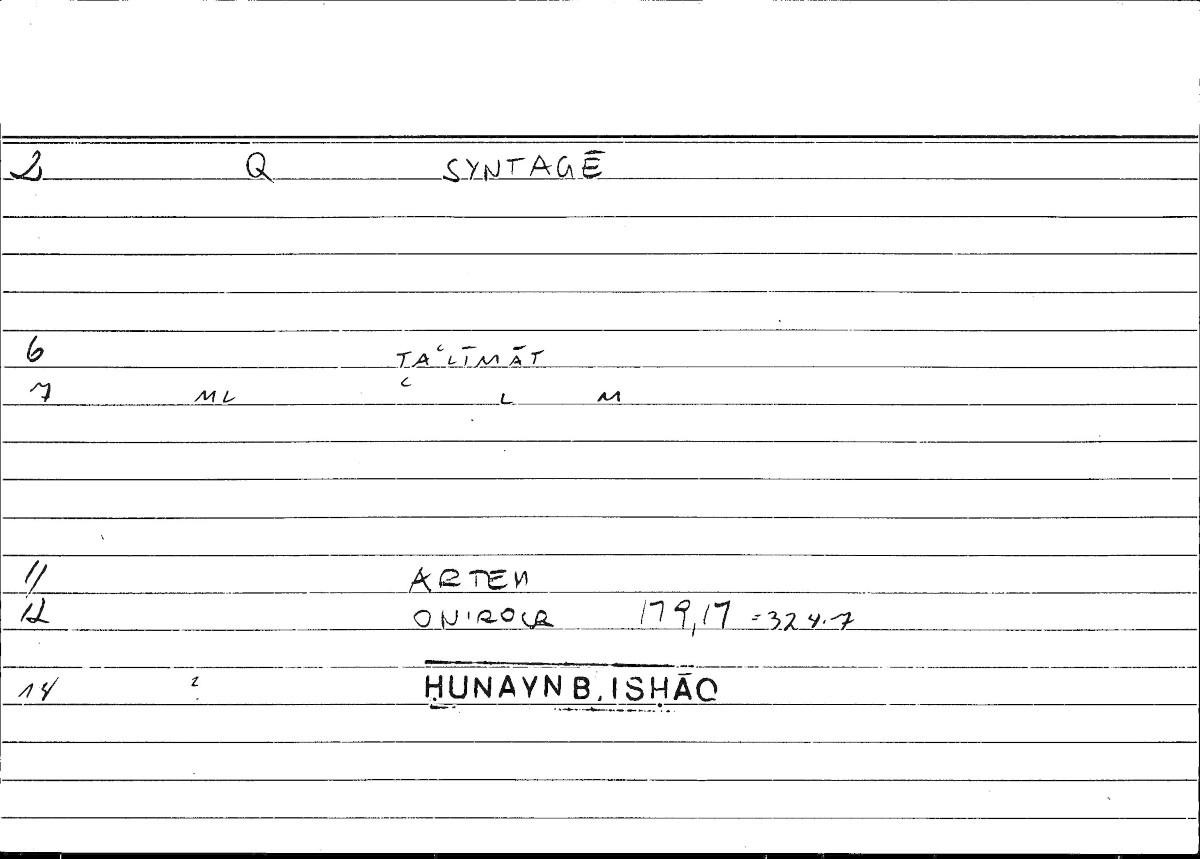 2 Q SYNTAGĒ
6 TAʿLĪMĀT
7 ML ʿ L M
11 ARTEM
12 ONIROCR 179,17 =324.7
14 2 ḤUNAYN B. ISḤĀQ